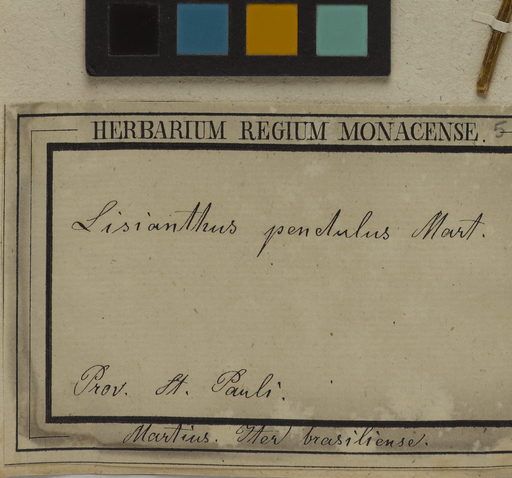 HERBARIUM REGIUM MONACENSE. 5
Lisianthus pendulus Mart.
Prov. St. Pauli.
Martius. Iter brasiliense.